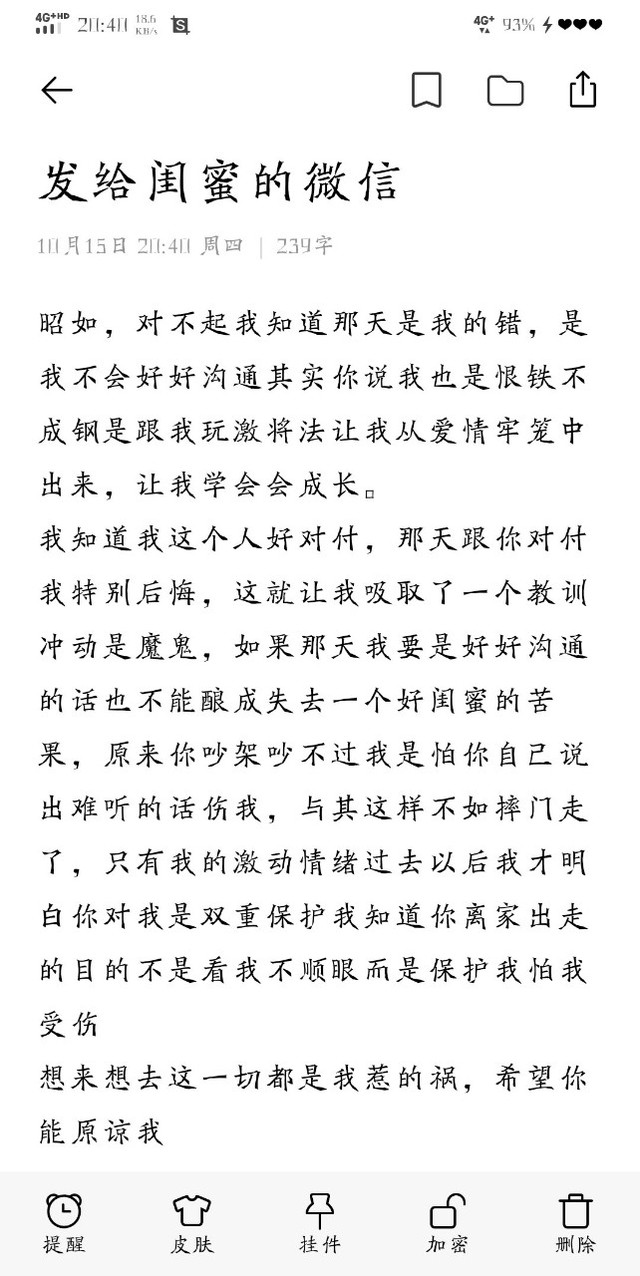 4G+HD 20:40 18.6 KB/s S 4G+ 93%
发给闺蜜的微信
10月15日 20:40 周四 | 239字
昭如，对不起我知道那天是我的错，是
我不会好好沟通其实你说我也是恨铁不
成钢是跟我玩激将法让我从爱情牢笼中
出来，让我学会会成长。
我知道我这个人好对付，那天跟你对付
我特别后悔，这就让我吸取了一个教训
冲动是魔鬼，如果那天我要是好好沟通
的话也不能酿成失去一个好闺蜜的苦
果，原来你吵架吵不过我是怕你自己说
出难听的话伤我，与其这样不如摔门走
了，只有我的激动情绪过去以后我才明
白你对我是双重保护我知道你离家出走
的目的不是看我不顺眼而是保护我怕我
受伤
想来想去这一切都是我惹的祸，希望你
能原谅我
提醒 皮肤 挂件 加密 删除